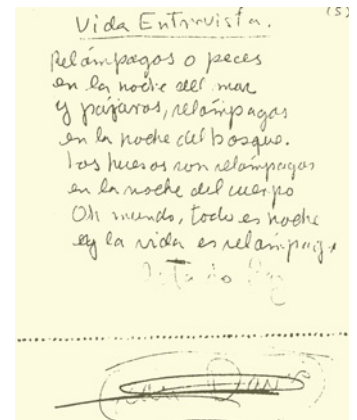 (5)
Vida Entrevista.
Relámpagos o peces
en la noche del mar
y pájaros, relámpagos
en la noche del bosque.
Los huesos son relámpagos
en la noche del cuerpo
Oh mundo, todo es noche
y la vida es relámpago
Octavio Paz